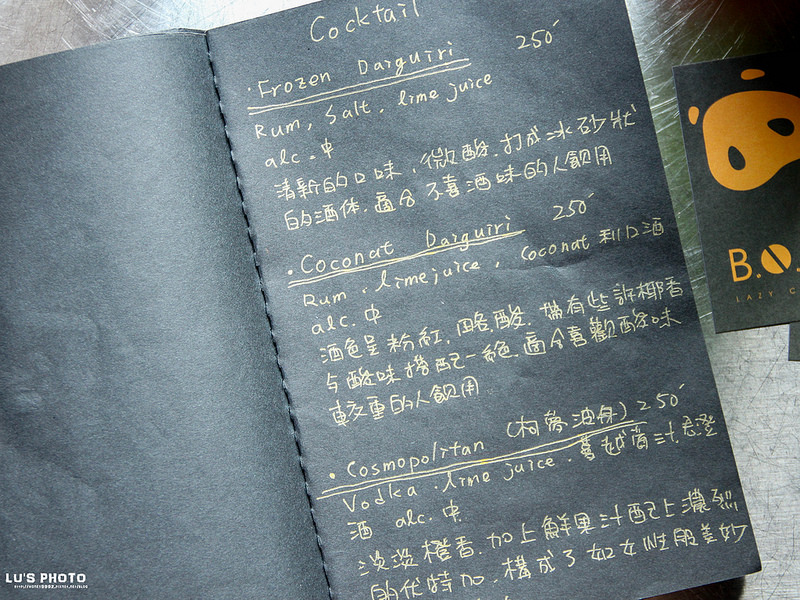 Cocktail
·Frozen Daiguiri 250
Rum, Salt, lime juice
alc.中
清新的口味,微酸.打成冰砂狀
的酒体.適合不喜酒味的人飲用
·Coconat Daiguiri 250
Rum.limejuice, coconat利口酒
alc.中
酒色呈粉紅.略酸.帶有些許椰香
与酸味搭配一絕.適合喜歡酸味
較重的人飲用
·Cosmopolitan (柯夢波丹) 250
Vodka.lime juice.蔓越莓汁.君澄
酒 alc.中.
淡淡橙香.加上鮮果汁配上濃烈
的伏特加.構成了如女性般美妙
B.O.
LAZY C
LU'S PHOTO